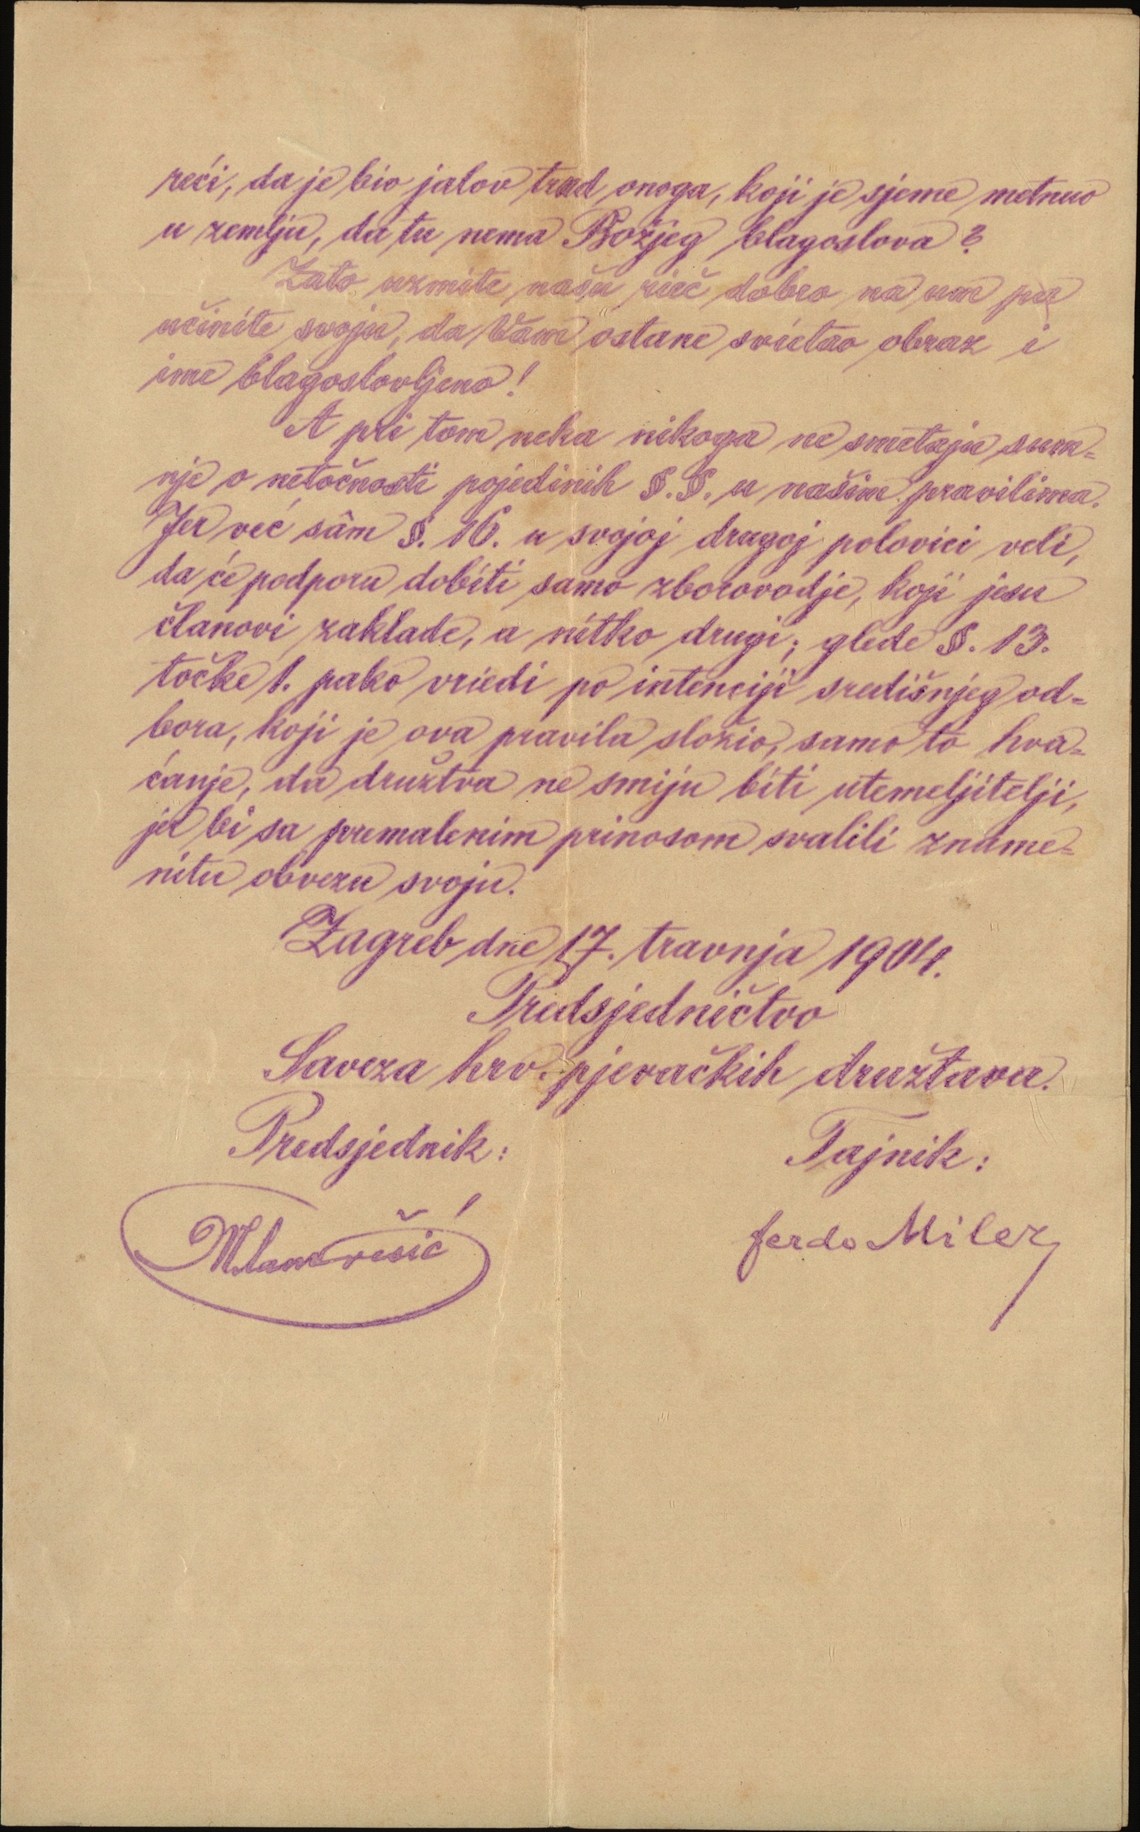 reći, da je bio jalov trud onoga, koji je sjeme metnuo
u zemlju, da tu nema Božjeg blagoslova?
Zato uzmite našu rieč dobro na um pa
učinite svoju, da Vam ostane svietao obraz i
ime blagoslovljeno!
A pri tom neka nikoga ne smetaju sum=
nje o netočnosti pojedinih §.§. u našim pravilima.
Jer već sâm §. 16. u svojoj drugoj polovici veli,
da će podporu dobiti samo zborovodje, koji jesu
članovi zaklade, a nitko drugi; glede §. 13.
točke 1. pako vriedi po intenciji središnjeg od=
bora, koji je ova pravila složio, samo to hva=
ćanje, da družtva ne smiju biti utemeljitelji,
jer bi sa premalenim prinosom svalili zname=
nitu obvezu svoju.
Zagreb dne 17. travnja 1904.
Predsjedničtvo
Saveza hrv. pjevačkih družtava.
Predsjednik:
Tajnik:
Ferdo Miler